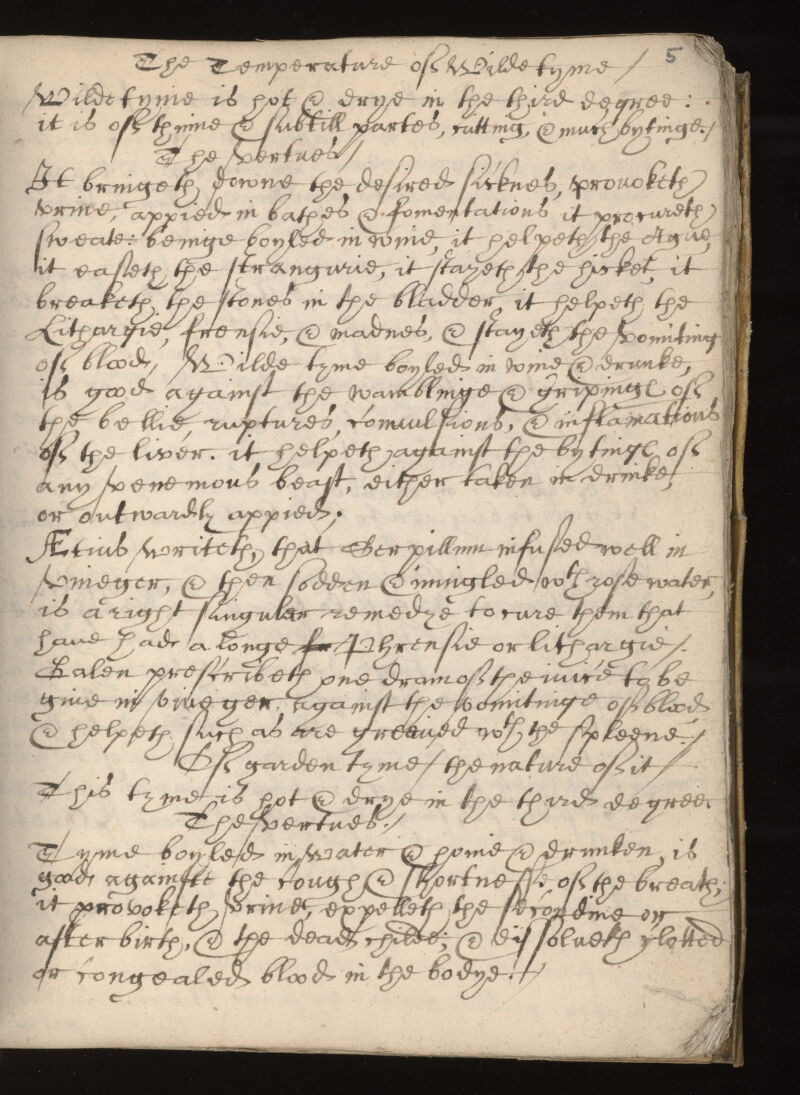 5
The Temperature off Wilde tyme /
Wilde tyme is hot & drye in the third degree:
it is off thinne & subtill partes, cutting, & much bytinge /
The vertues /
It bringeth downe the desired sicknes, provoketh
vrine, appied in bathes & fomentations it procureth
sweate: beinge boyled in wine, it helpeth the Ague,
it easeth the strangurie, it stayeth the hicket, it
breaketh the stones in the bladder, it helpeth the
Lithargie, frensie, & madnes, & stayeth the vomiting
off blood, Wilde tyme boyled in wine & drunke,
is good against the wamblinge & gripinge off
the bellie, ruptures, convulsions, & inflamations
off the liver. it helpeth against the bytinge off
any venemous beast, either taken in drinke,
or outwardly appied;
Ætius writeth, that Serpillum infused well in
vineger, & then sodden & mingled wth rose water,
is a right singuler remedye to cure them that
have had a longe fr Phrensie or lithargie /
Galen prescribeth one dram off the iuice to be
give in vineger, against the vomitinge off blood
& helpeth such as are greeved wth the spleene /
Off garden tyme / the nature off it /
This tyme is hot & drye in the third degree
The vertues /
Tyme boyled in water & honie & drunken, is
good againste the cough & shortnesse off the breath;
it provoketh vrine, expelleth the secondine or
after birth, & the dead childe; & dissolveth clotted
or congealed blood in the bodye. /